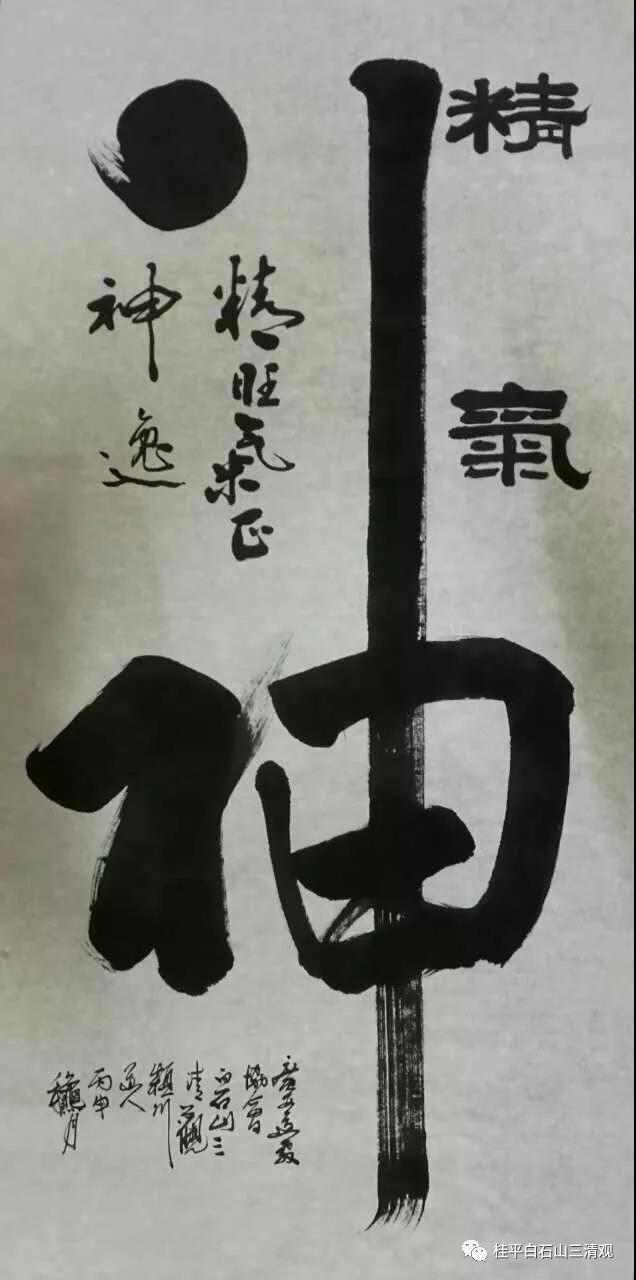 精
氣
神
精旺氣正
神逸
广西道教
協會
白石山三
清觀
穎川
道人
丙申
龝月
桂平白石山三清观